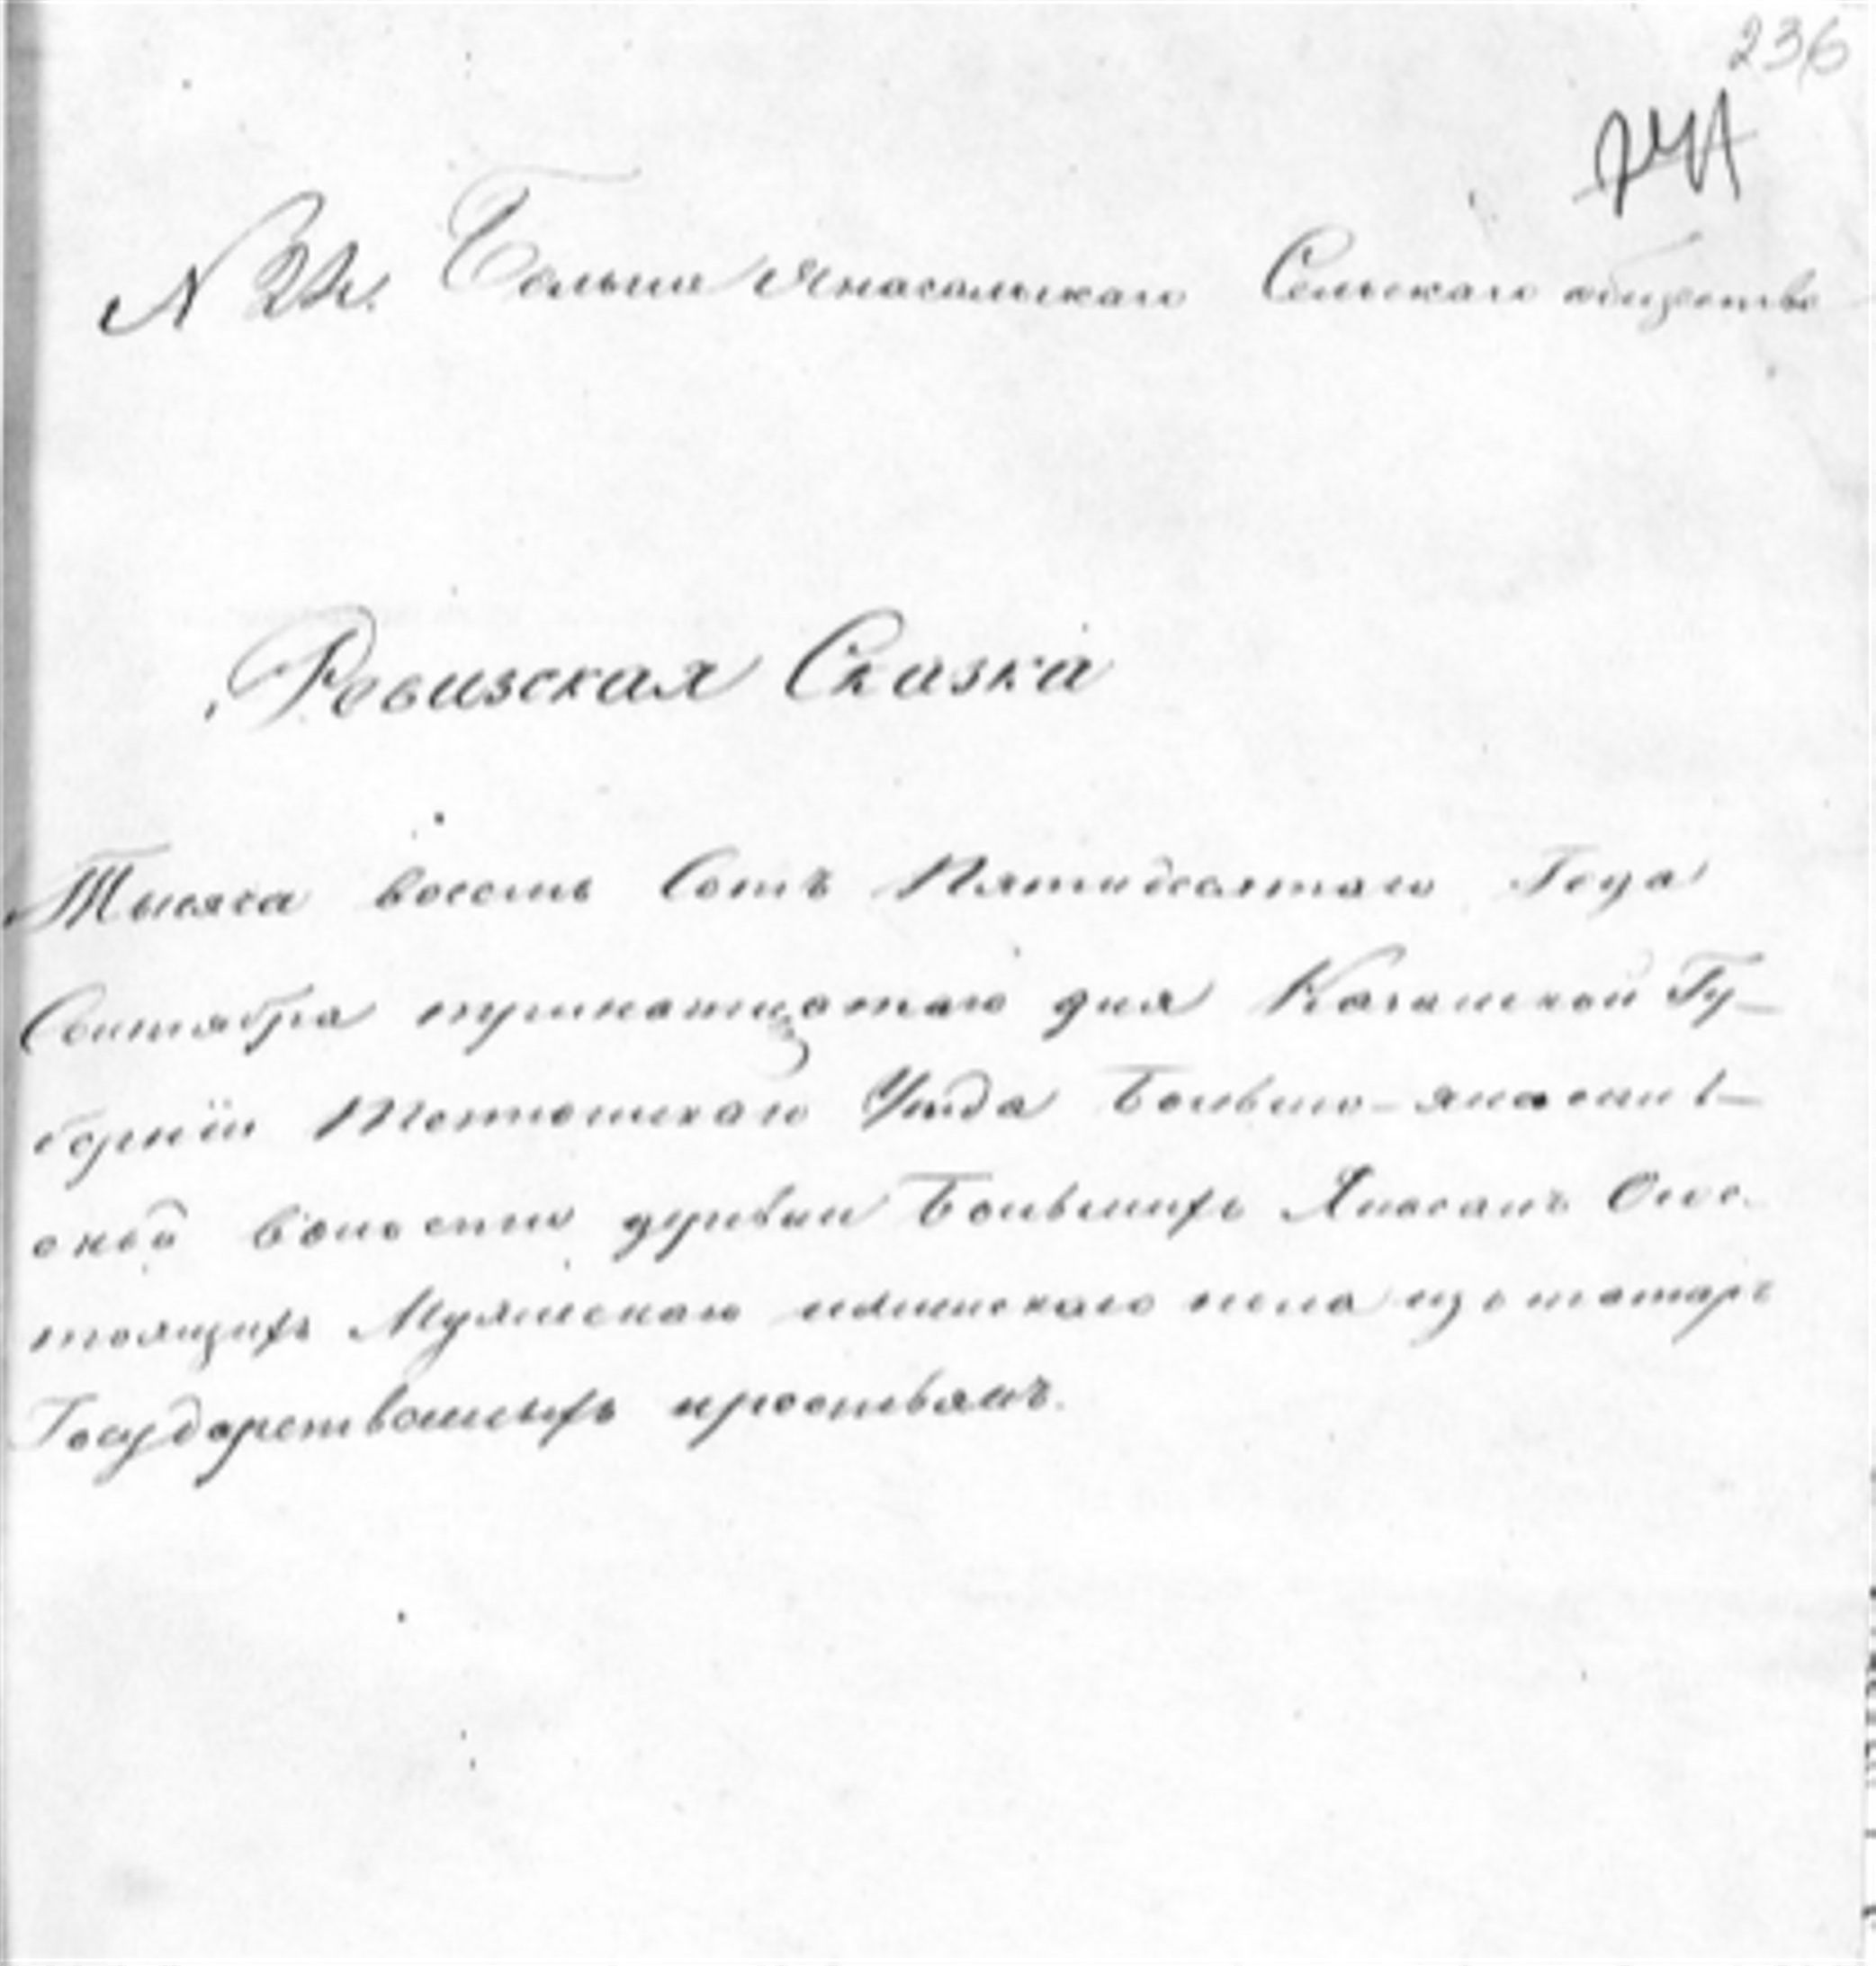 236
N 22. Больше Янасальскаго Сельскаго общества
Ревизская Сказка
Тысяча восемь Сотъ Пятидесятаго Года
Сентября тринатцатаго дня Казанской Гу-
берніи Тетюшскаго Уезда Больше-янасаль-
ской волости деревни Большихъ Янасалъ О сос-
тоящихъ Мужескаго и женскаго пола изъ татаръ
Государственныхъ крестьянъ.